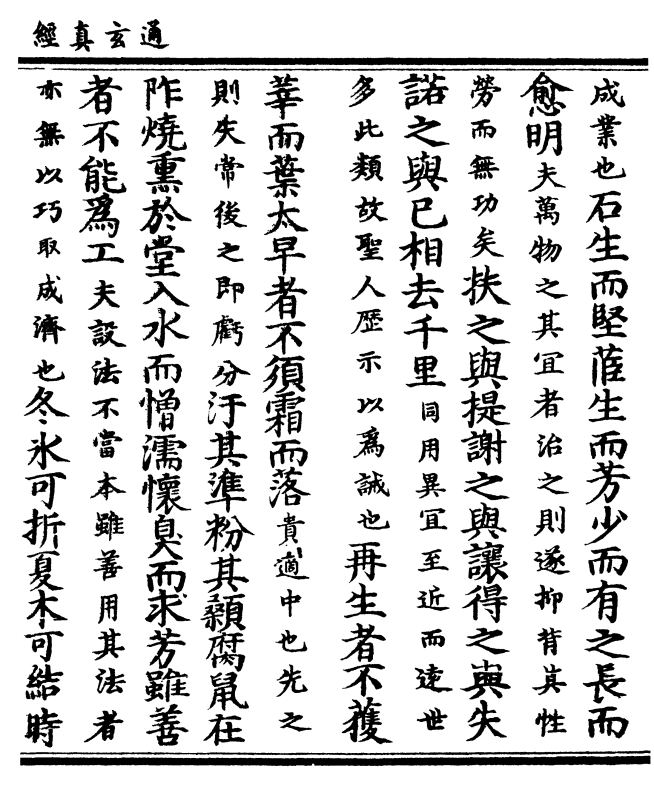 通玄真經
成業也石生而堅茝生而芳少而有之長而
愈明夫萬物之其冝者治之則遂抑背其性
勞而無功矣扶之與提謝之與讓得之與失
諾之與已相去千里同用異冝至近而逺世
多此類故聖人歴示以為誡也再生者不獲
華而葉太早者不須霜而落貴適中也先之
則失常後之即虧分汙其準粉其顙腐鼠在
阼燒熏於堂入水而憎濡懷臭而求芳雖善
者不能爲工夫設法不當本雖善用其法者
亦無以巧取成濟也冬氷可折夏木可結時